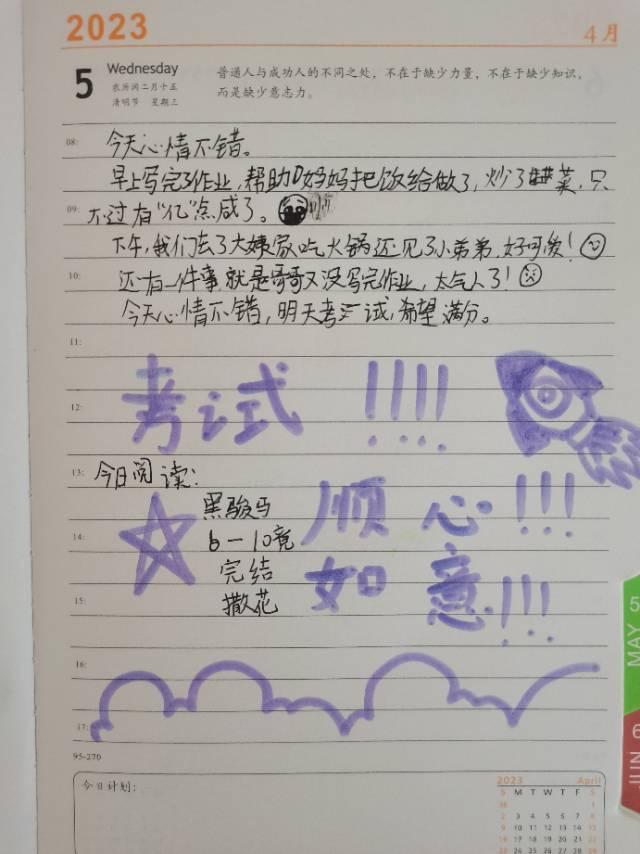 2023
4月
5 Wednesday
农历闰二月十五
清明节 星期三
普通人与成功人的不同之处，不在于缺少力量，不在于缺少知识，
而是缺少意志力。
08:
今天心情不错。
早上写完了作业，帮助妈妈把饭给做了，炒了菜，只
09:
不过有“亿”点咸了。
下午，我们去了大姨家吃火锅还见了小弟弟，好可爱！
10:
还有一件事就是哥哥又没写完作业，太气人了！
今天心情不错，明天考试，希望满分。
11:
12:
考试！！！！
13:
今日阅读：
黑骏马
顺心！！！
14:
6—10章
完结
如意！！！
15:
撒花
16:
17:
95-270
今日计划：
2023 April
S M T W T F S
30 1
2 3 4 5 6 7 8
9 10 11 12 13 14 15
16 17 18 19 20 21 22
23 24 25 26 27 28 29
MAY 5
JUN 6